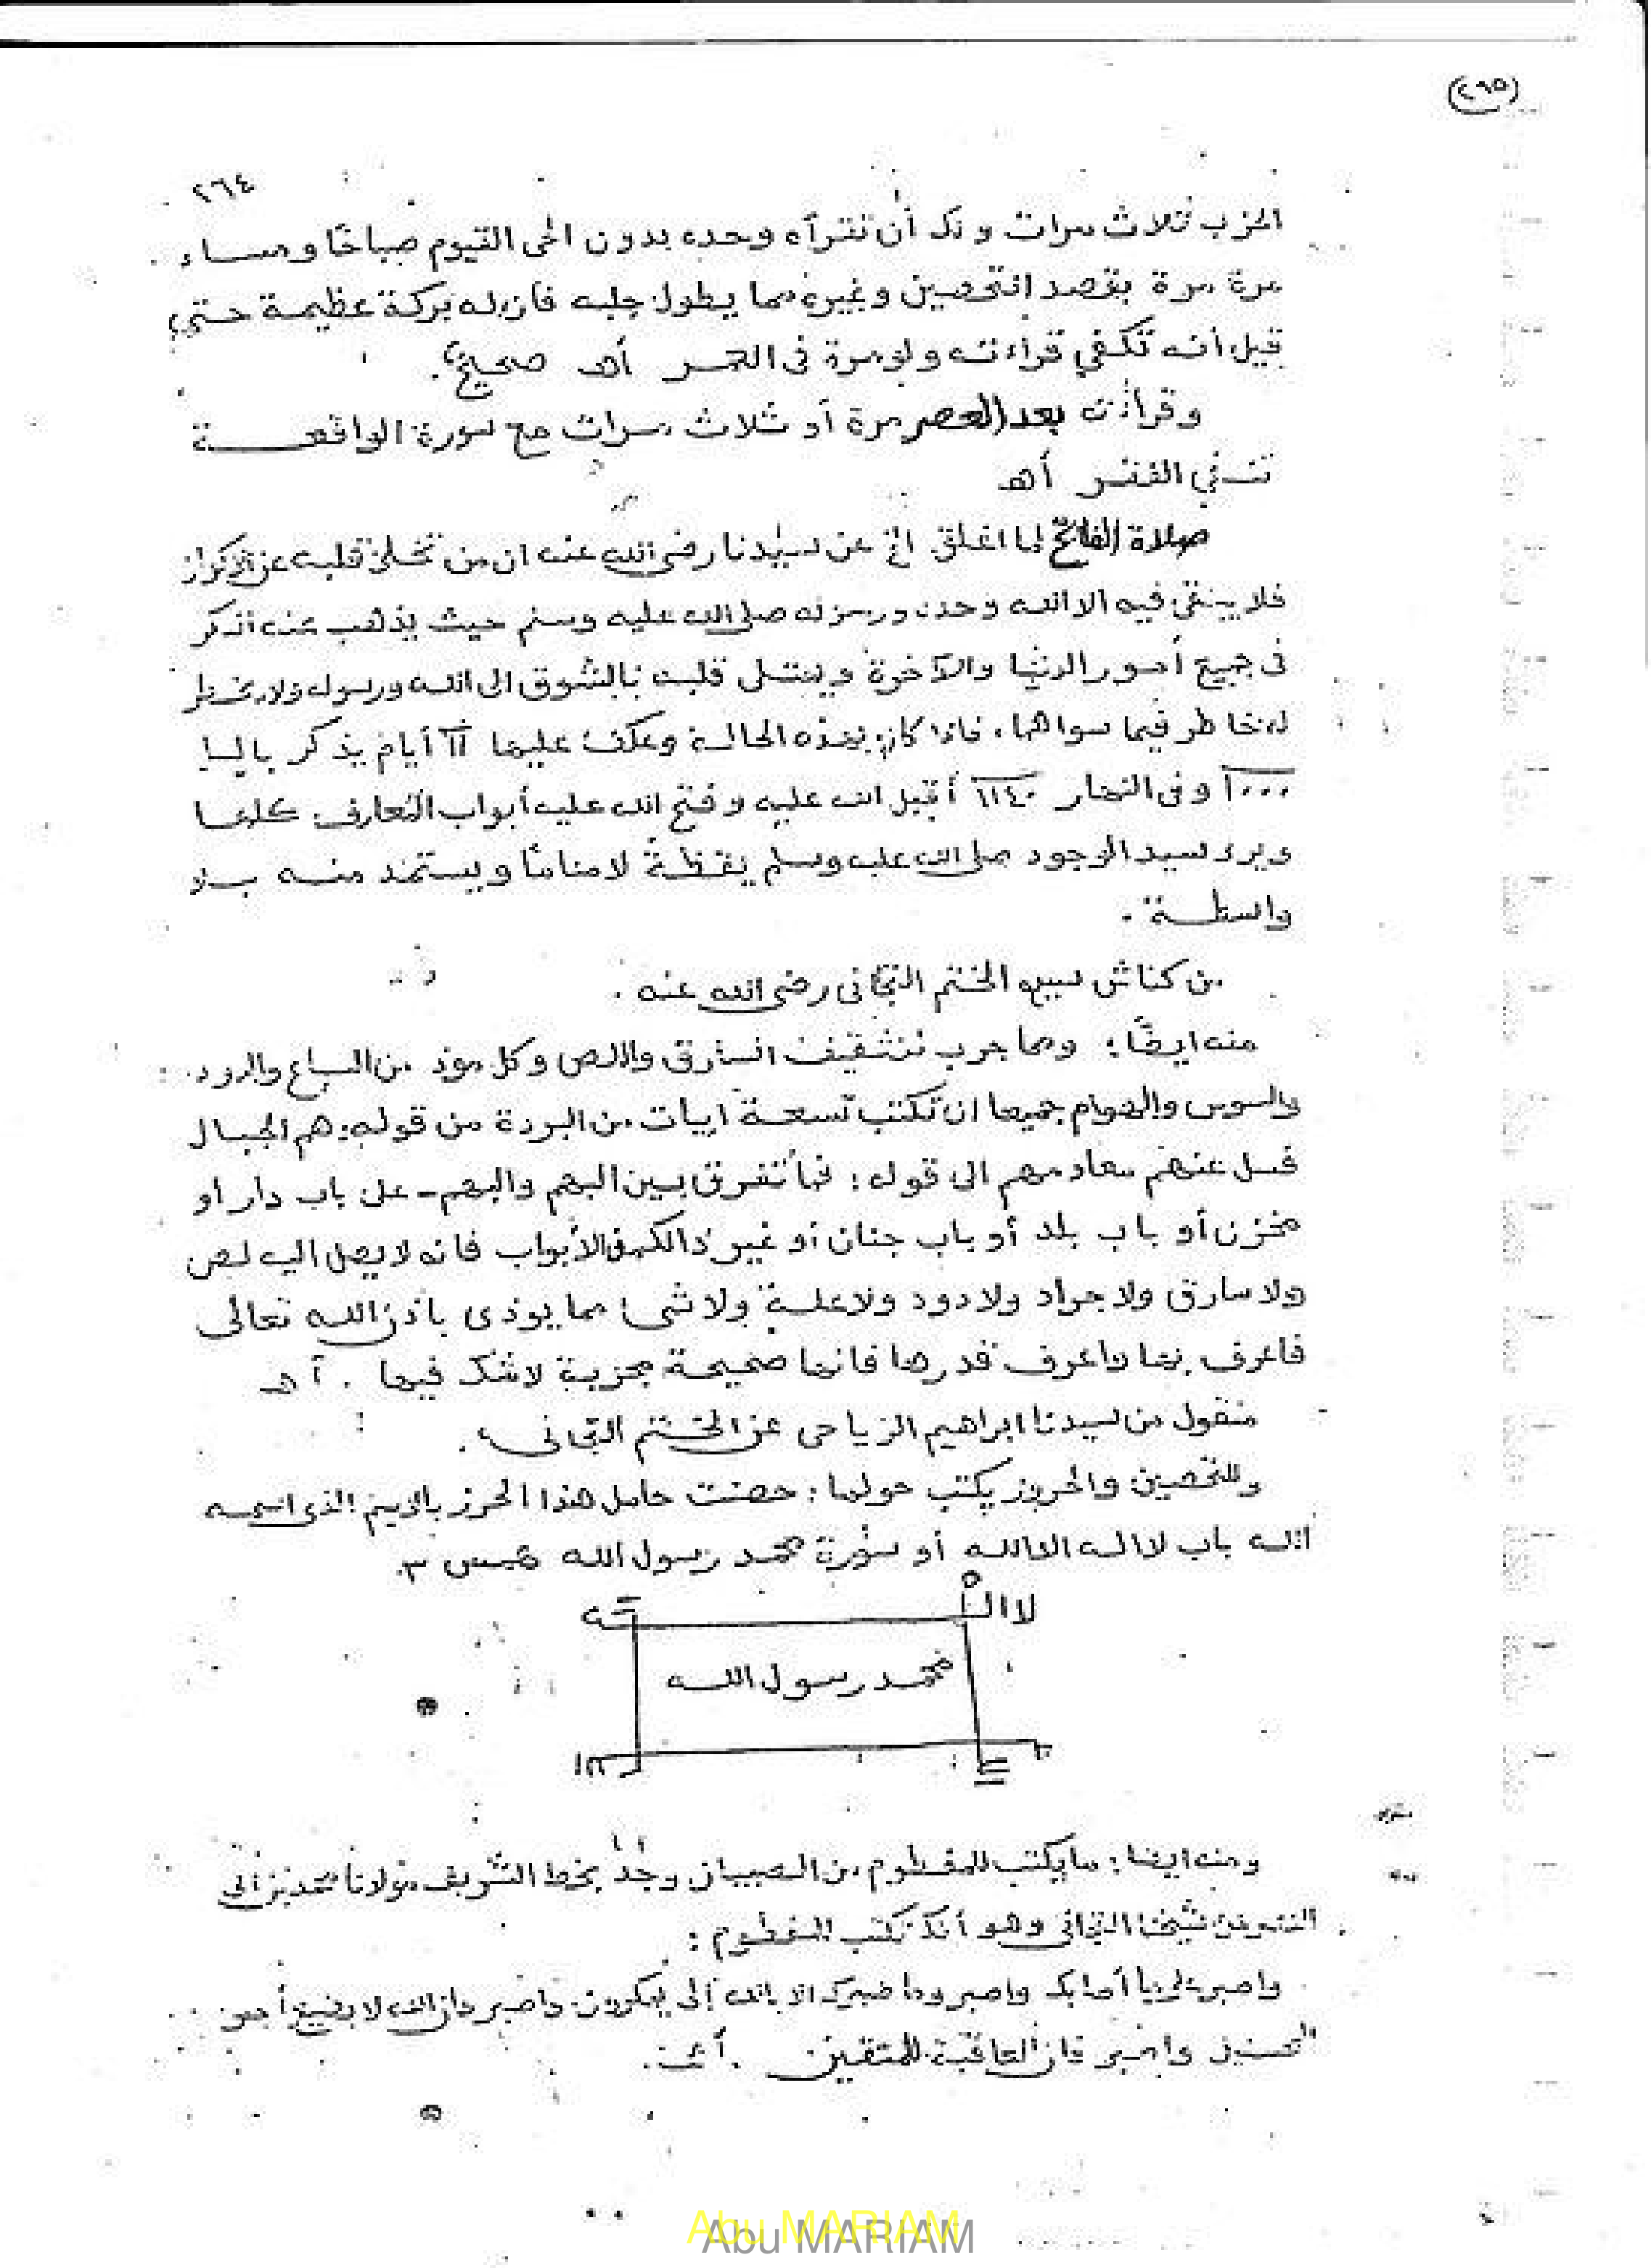 (٢٦٥)
٢٦٤
الحزب ثلاث مرات ولك أن تقرأه وحده بدون الحى القيوم صباحا ومساء
مرة مرة بقصد التحصين وغيره مما يطول جلبه فان له بركة عظيمة حتى
قيل أنه تكفي قراءته ولو مرة فى العمر أهـ صحيح.
وقراءته بعد العصر مرة أو ثلاث مرات مع سورة الواقعة
تنفي الفقر أهـ
صلاة الفاتح لما اغلق الخ عن سيدنا رضى الله عنه ان من تخلى قلبه عن الاكوان
فلا يبقى فيه الا الله وحده ورسوله صلى الله عليه وسلم حيث يذهب عنه الذكر
فى جميع أمور الدنيا والآخرة ويمتلى قلبه بالشوق الى الله ورسوله ولا يخطر
له خاطر فيما سواهما، فاذا كان بهذه الحالة وعكف عليها أيام يذكر
١٠٠٠ وفى النهار ٦١٤٠ أقبل الله عليه وفتح الله عليه أبواب المعارف كلها
ويرى سيد الوجود صلى الله عليه وسلم يقظة لا مناما ويستمد منه بلا
واسطة.
من كناش سيدى الختم التجانى رضى الله عنه.
منه ايضا: ومما جرب لتثقيف السارق واللص وكل موذ من السباع والدود
والسوس والهوام جميعا ان تكتب تسعة ابيات من البردة من قوله: هم الجبال
فسل عنهم مصادمهم الى قوله: فما تفرق بين البهم والبهم - على باب دار او
مخزن أو باب بلد أو باب جنان أو غير ذالك من الأبواب فانه لا يصل اليه لص
ولا سارق ولا جراد ولا دود ولا علة ولا شىء مما يوذى باذن الله تعالى
فاعرف بها واعرف قدرها فانها صحيحة مجربة لا شك فيها. أهـ
منقول من سيدنا ابراهيم الرياحى عن الختم التجانى.
وللتحصين والحروز يكتب حولها: حصنت حامل هذا الحرز بالاسم الذى اسمه
الله باب لا اله الا الله أو سورة محمد رسول الله ٣
لا الـه
محمد رسول الله
ومنه ايضا: ما يكتب للمفطوم من الصبيان وجد بخط الشريف مولانا محمد بن أبى
النصر عن شيخنا التجانى وهو أنك تكتب للمفطوم:
واصبر على ما أصابك واصبر وما صبرك الا بالله إلى يمكرون واصبر فان الله لا يضيع أجر
المحسنين واصبر فان العاقبة للمتقين.
Abu MARIAM